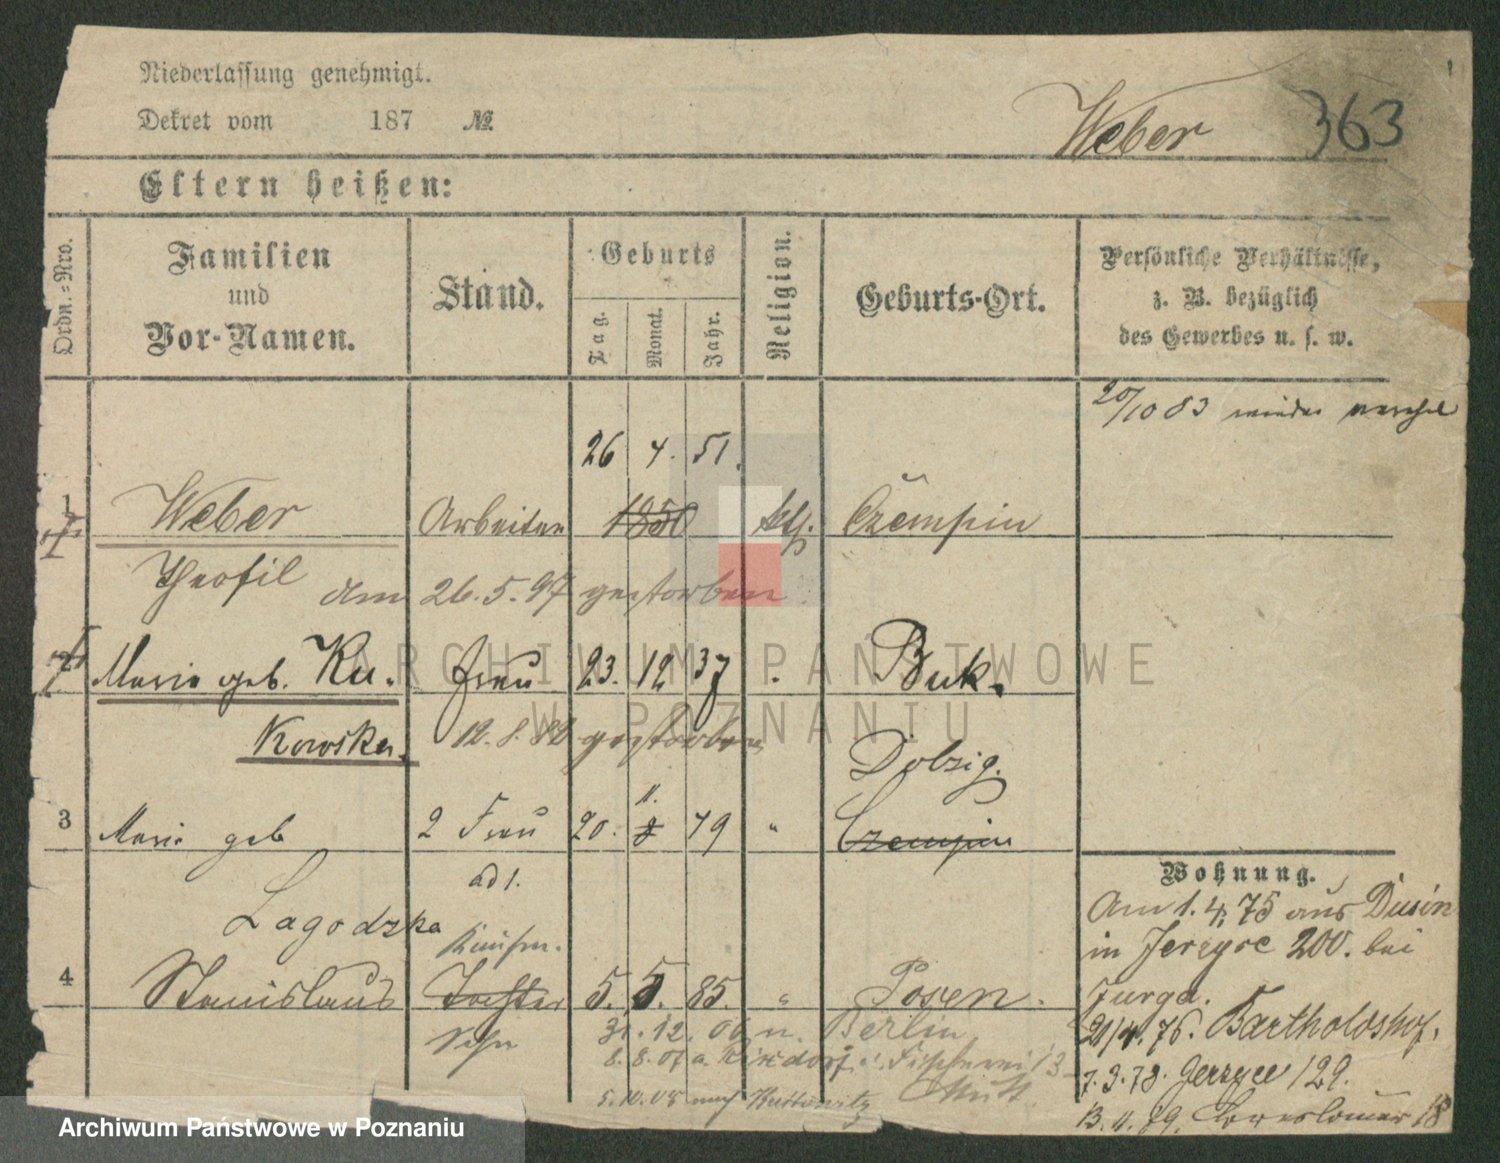 Niederlassung genehmigt.
Dekret vom 187 №
Weber 363
Eltern heißen:
Ordn.-Nro.
Familien und Vor-Namen.
Stand.
Geburts
Tag. Monat. Jahr.
Religion.
Geburts-Ort.
Persönliche Verhältnisse,
z. B. bezüglich
des Gewerbes u. s. w.
20/10 83 wieder
26 4. 51.
1 Weber Arbeiter 1850 kth. Czempin
Theofil am 26. 5. 97 gestorben
Marie geb. Ku. Frau 23. 12 37 Buk.
kowska. 12. 8. 82 gestorben
Dolzig.
11.
3 Marie geb 2 Frau 20. 2 79 " Czempin
ad 1.
Lagodzka
4 Stanislaus Tochter 5. 5. 85. " Posen.
Sohn 31. 12. 06 n. Berlin
8. 8. 07 a. Rixdorf
5. 10. 08 nach Kattowitz
Wohnung.
Am 1. 4. 75 aus Dusin
in Jerzyce 200. bei
Jurga.
21/4. 76. Bartholdshof.
7. 3. 78. Jerzyce 129.
13. 11. 79. 18
ARCHIWUM PAŃSTWOWE
W POZNANIU
Archiwum Państwowe w Poznaniu